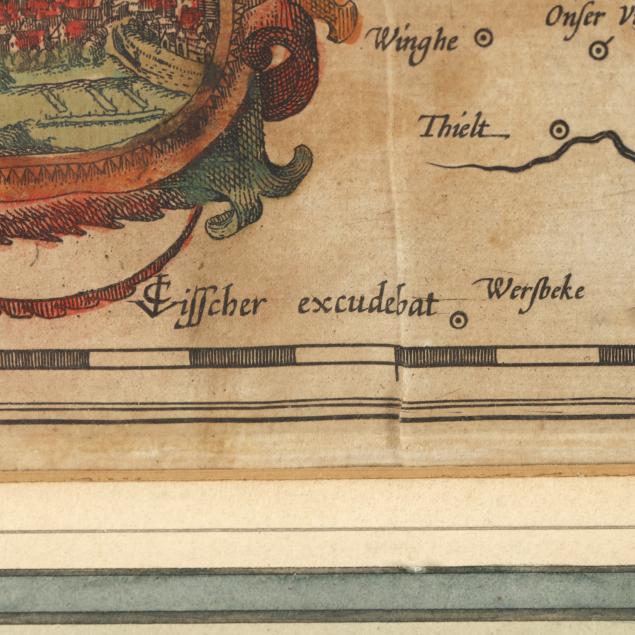 Winghe
Onser V
Thielt
CJVisscher excudebat
Wersbeke